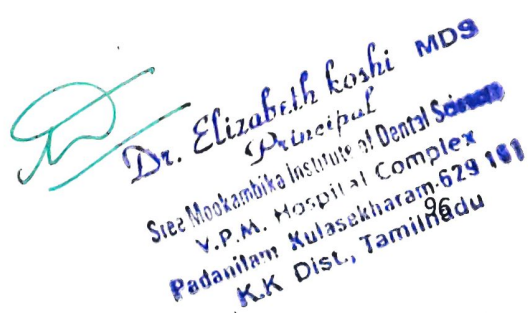 Dr. Elizabeth koshi MDS
Principal
Sree Mookambika Institute of Dental Sciences
V.P.M. Hospital Complex
Padanilam Kulasekharam-629 161
96
K.K Dist., Tamilnadu